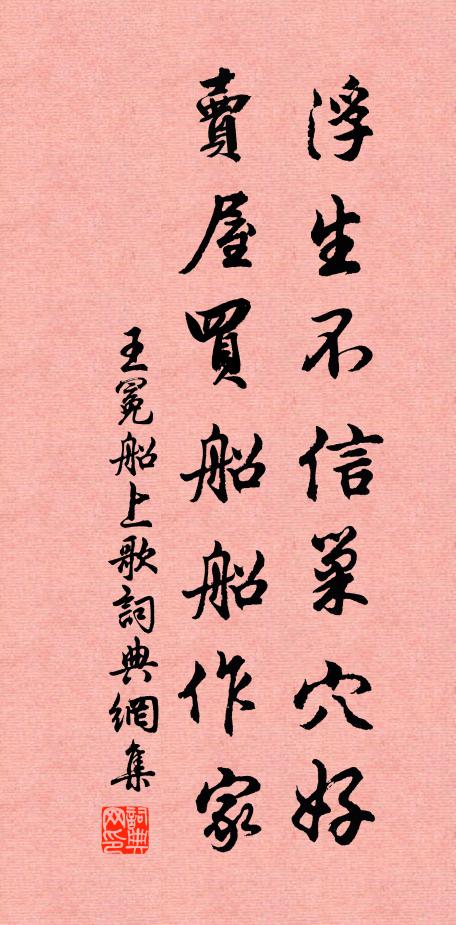 浮生不信巢穴好
賣屋買船船作家
王冕船上歌詞典網集
詞典网印